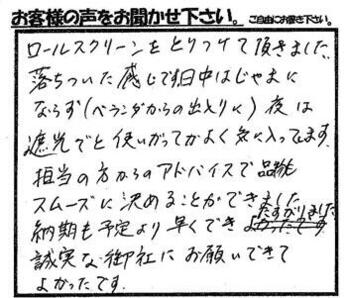 お客様の声をお聞かせ下さい。ご自由にお書き下さい。
ロールスクリーンをとりつけて頂きました。
落ちついた感じで日中はじゃまに
ならず(ベランダからの出入りに)夜は
遮光でと使いがってがよく気に入ってます。
担当の方からのアドバイスで品物
スムーズに決めることができました
たすかりました
納期も予定より早くでき
誠実な御社にお願いできて
よかったです。